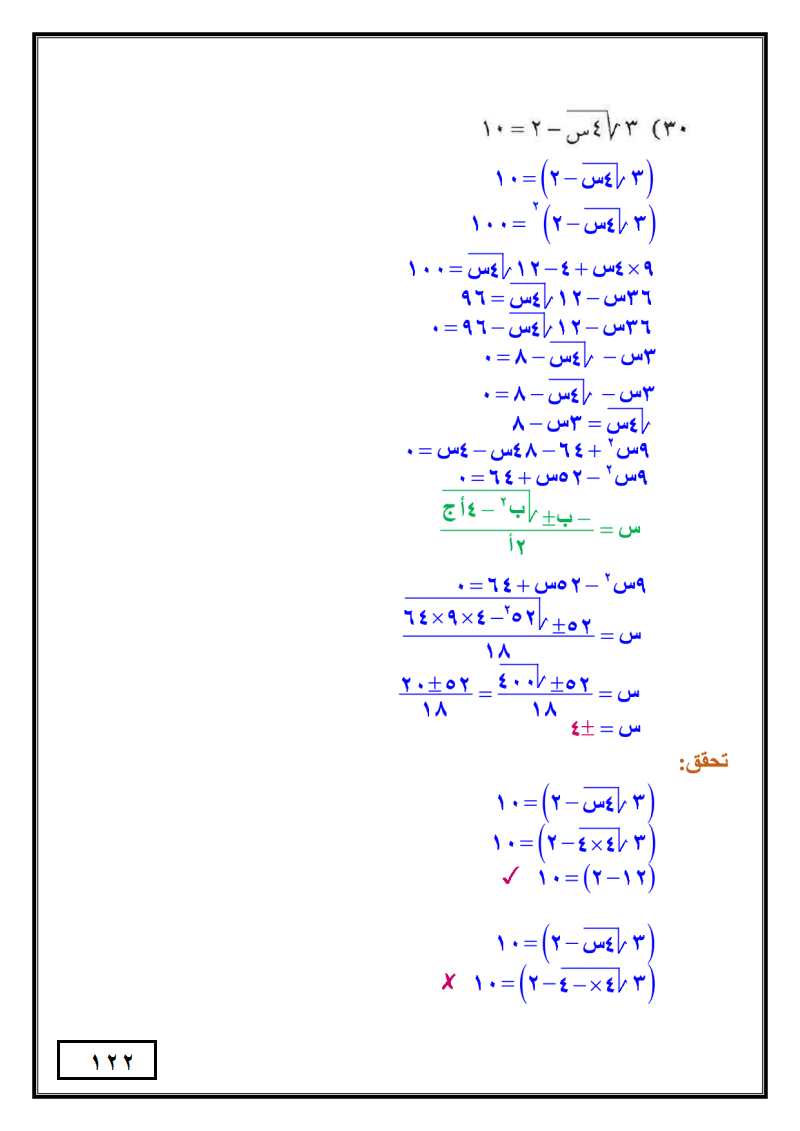 ٣٠) ٣√٤س − ٢ = ١٠
(٣√٤س − ٢) = ١٠
(٣√٤س − ٢)² = ١٠٠
٩×٤س + ٤ − ١٢√٤س = ١٠٠
٣٦س − ١٢√٤س = ٩٦
٣٦س − ١٢√٤س − ٩٦ = ٠
٣س − √٤س − ٨ = ٠
٣س − √٤س − ٨ = ٠
√٤س = ٣س − ٨
٩س² + ٦٤ − ٤٨س − ٤س = ٠
٩س² − ٥٢س + ٦٤ = ٠
س = (−ب ± √ب² − ٤أج) / ٢أ
٩س² − ٥٢س + ٦٤ = ٠
س = (٥٢ ± √٥٢² − ٤×٩×٦٤) / ١٨
س = (٥٢ ± √٤٠٠) / ١٨ = (٥٢ ± ٢٠) / ١٨
س = ±٤
تحقق:
(٣√٤س − ٢) = ١٠
(٣√٤×٤ − ٢) = ١٠
(١٢ − ٢) = ١٠ ✓
(٣√٤س − ٢) = ١٠
(٣√٤×−٤ − ٢) = ١٠ ✗
١٢٢